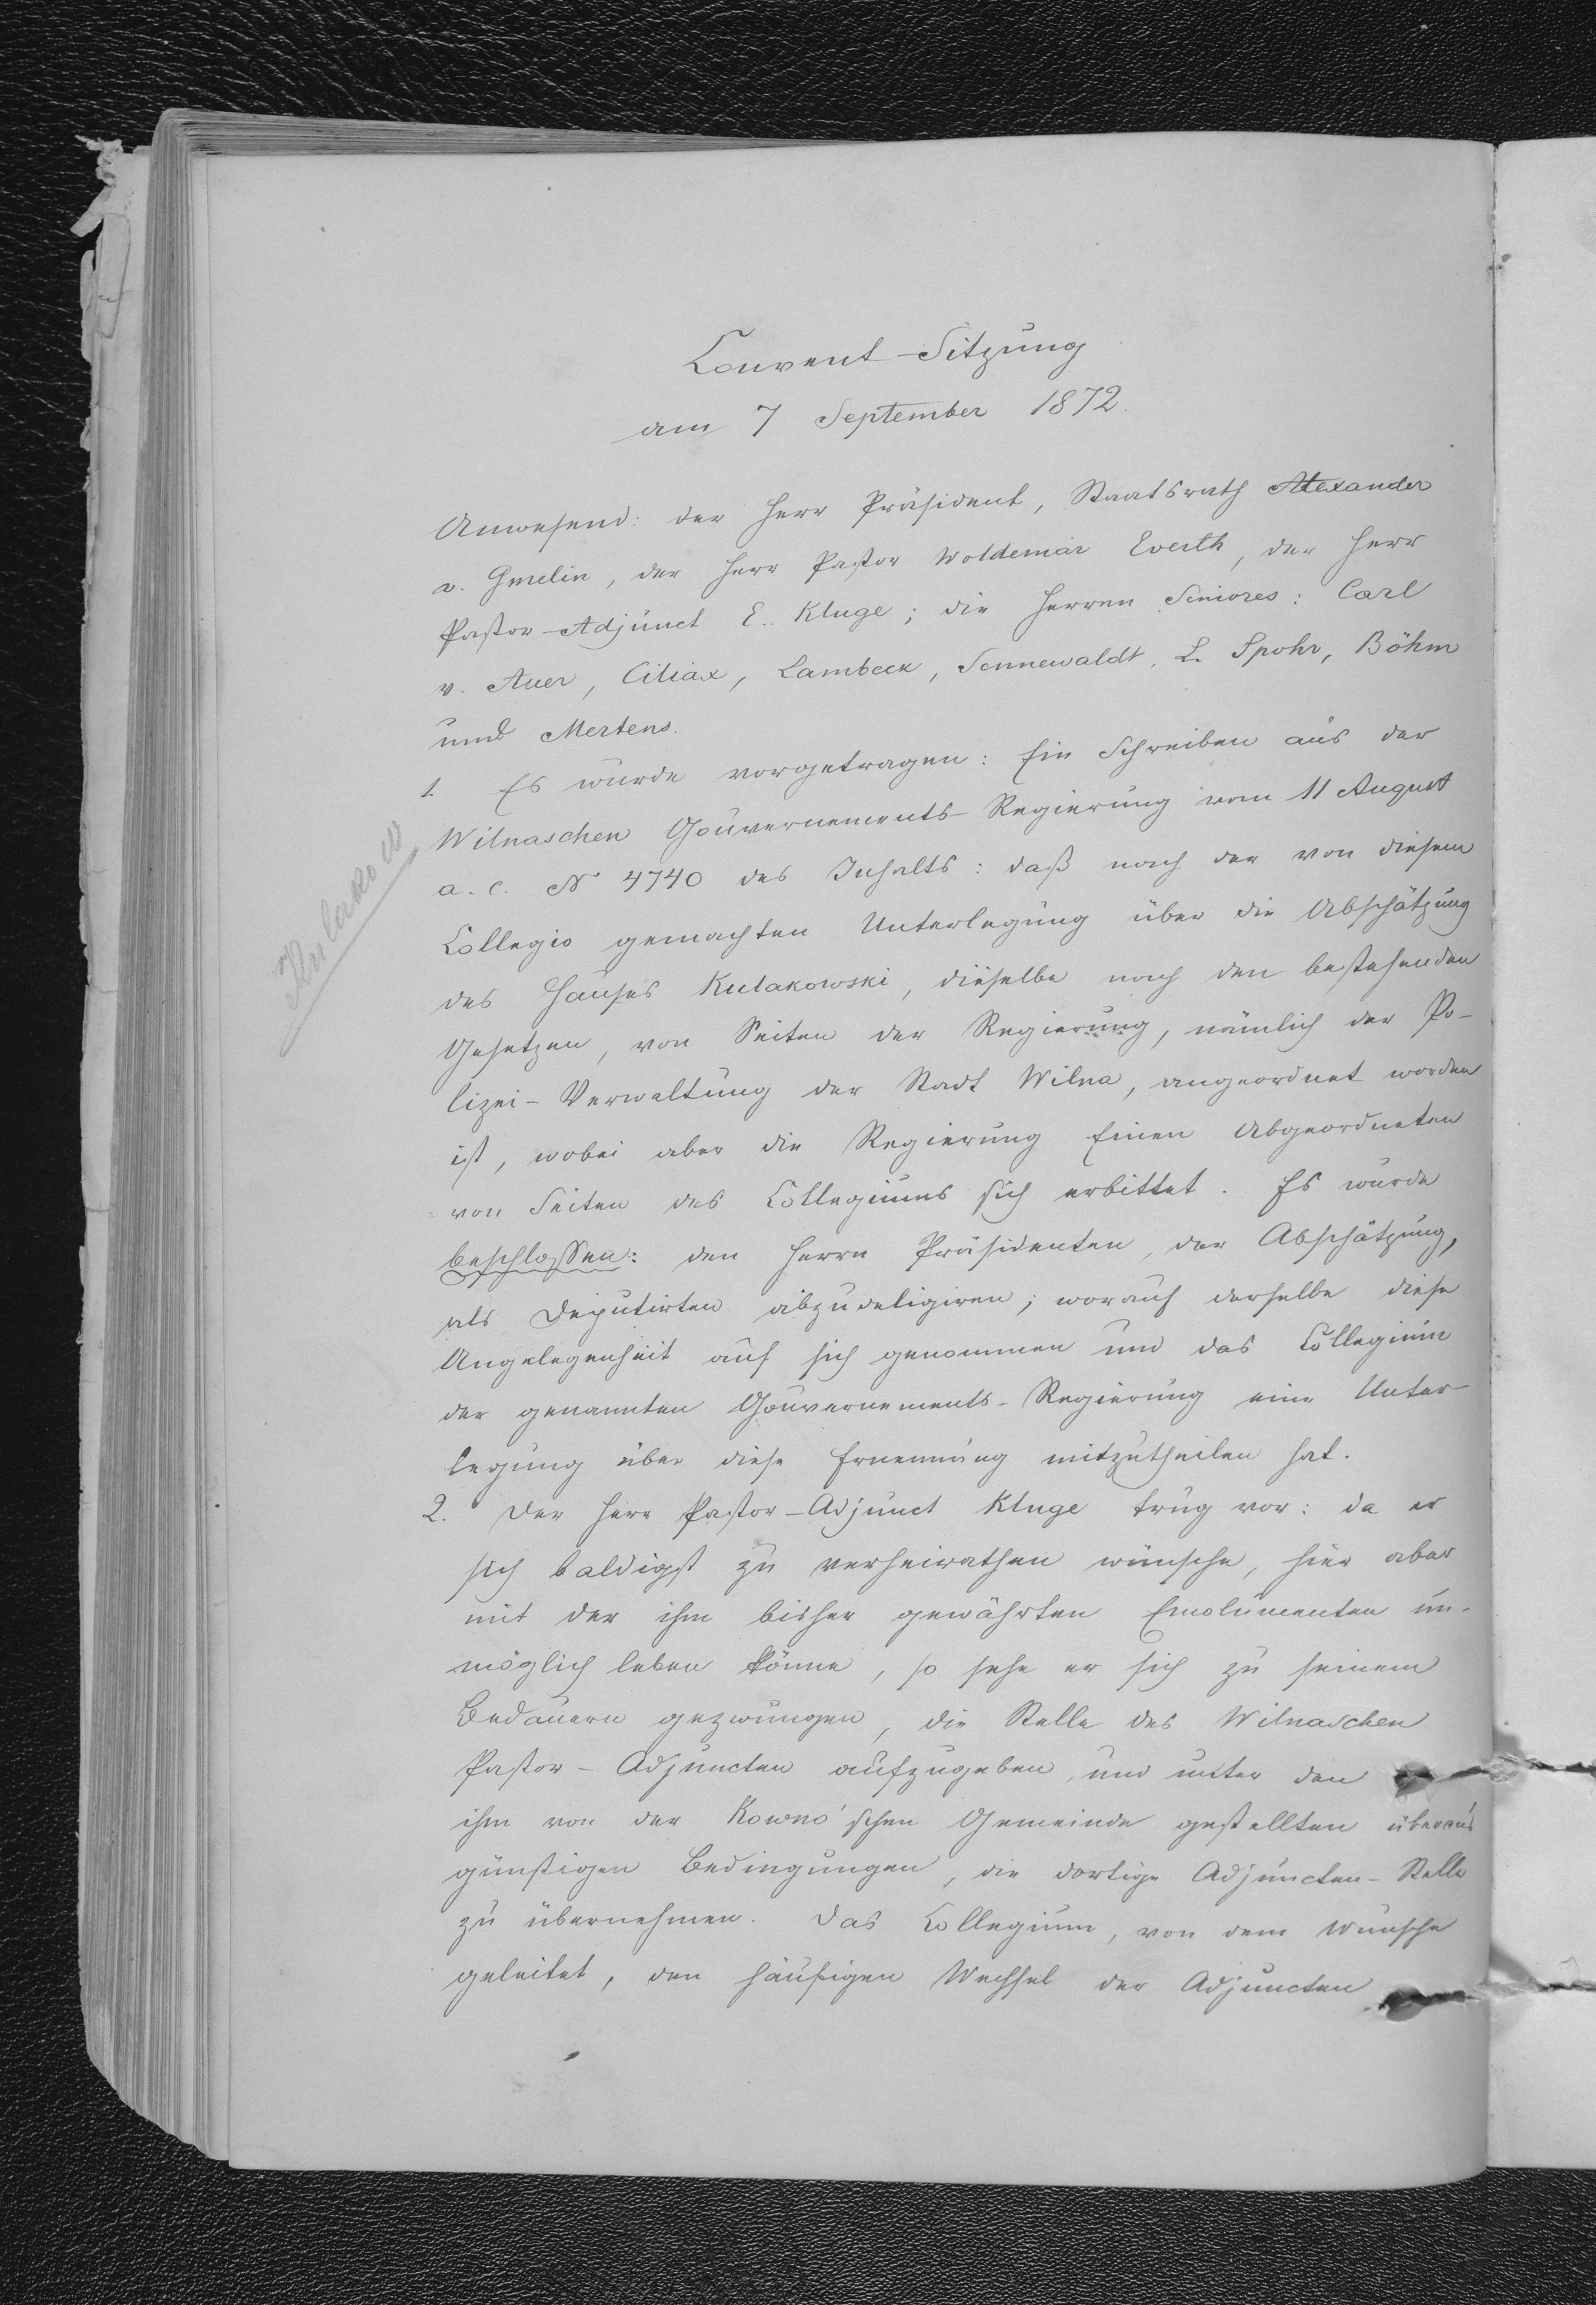 Convent-Sitzung
am 7 September 1872.
Anwesend: der Herr Präsident, Staatsrath Alexander
v. Gmelin, der Herr Pastor Woldemar Everth, der Herr
Pastor-Adjunct E. Kluge; die Herren Seniores: Carl
v. Auer, Ciliax, Lambeck, Sennewaldt, L. Spohr, Böhm
und Mertens.
1. Es wurde vorgetragen: Ein Schreiben aus der
Wilnaschen Gouvernements-Regierung vom 11 August
a. c. N 4740 des Inhalts: daß nach der von diesem
Kulakow
Collegio gemachten Unterlegung über die Abschätzung
des Hauses Kulakowski, dieselbe nach den bestehenden
Gesetzen, von Seiten der Regierung, nämlich der Po-
lizei-Verwaltung der Stadt Wilna, angeordnet worden
ist, wobei aber die Regierung Einen Abgeordneten
von Seiten des Collegiums sich erbittet. Es wurde
beschlossen: den Herrn Präsidenten, der Abschätzung,
als Deputirten abzudeligiren; worauf derselbe diese
Angelegenheit auf sich genommen und das Collegium
der genannten Gouvernements-Regierung eine Unter-
legung über diese Ernennung mitzutheilen hat.
2. Der Herr Pastor-Adjunct Kluge trug vor: da er
sich baldigst zu verheirathen wünsche, hier aber
mit der ihm bisher gewährten Emolumenten un-
möglich leben könne, so sehe er sich zu seinem
Bedauern gezwungen, die Stelle des Wilnaschen
Pastor-Adjuncten aufzugeben, und unter den
ihm von der Kowno'schen Gemeinde gestellten überaus
günstigen Bedingungen, die dortige Adjuncten-Stelle
zu übernehmen. Das Collegium, von dem Wunsche
geleitet, den häufigen Wechsel der Adjuncten